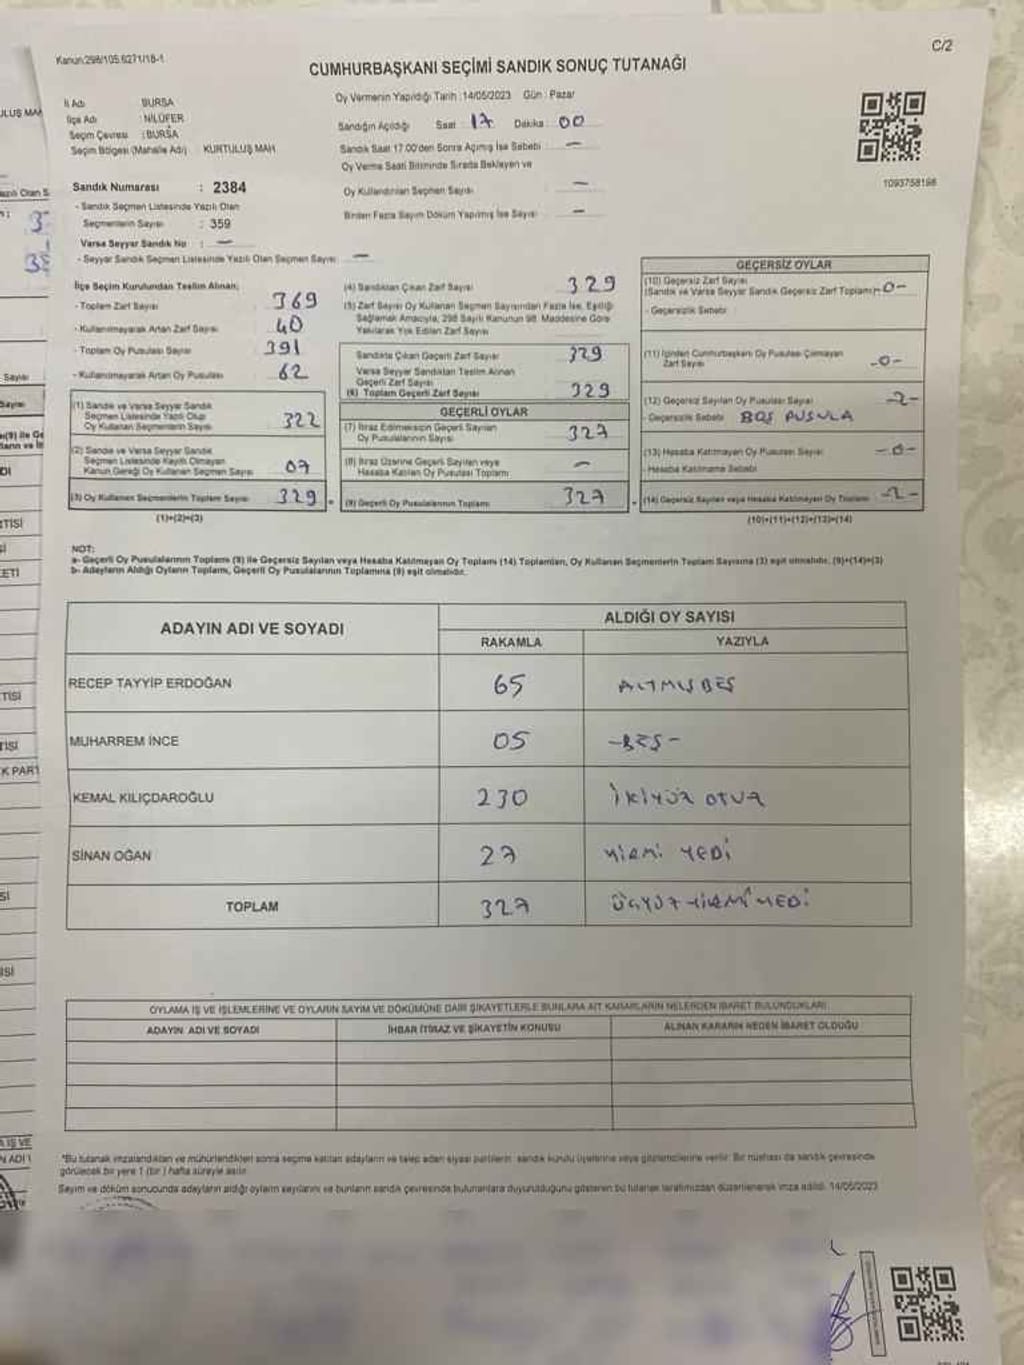 Kanun:298/105.6271/18-1
C/2
CUMHURBAŞKANI SEÇİMİ SANDIK SONUÇ TUTANAĞI
İl Adı BURSA
İlçe Adı : NİLÜFER
Seçim Çevresi : BURSA
Seçim Bölgesi (Mahalle Adı) : KURTULUŞ MAH
Sandık Numarası : 2384
- Sandık Seçmen Listesinde Yazılı Olan
Seçmenlerin Sayısı : 359
Varsa Seyyar Sandık No : —
- Seyyar Sandık Seçmen Listesinde Yazılı Olan Seçmen Sayısı : —
Oy Vermenin Yapıldığı Tarih : 14/05/2023 Gün : Pazar
Sandığın Açıldığı Saat : 17 Dakika : 00
Sandık Saat 17.00'den Sonra Açılmış İse Sebebi : —
Oy Verme Saati Bitiminde Sırada Bekleyen ve
Oy Kullandırılan Seçmen Sayısı : —
Birden Fazla Sayım Döküm Yapılmış İse Sayısı : —
1093758198
İlçe Seçim Kurulundan Teslim Alınan;
- Toplam Zarf Sayısı 369
- Kullanılmayarak Artan Zarf Sayısı 40
- Toplam Oy Pusulası Sayısı 391
- Kullanılmayarak Artan Oy Pusulası 62
(1) Sandık ve Varsa Seyyar Sandık
Seçmen Listesinde Yazılı Olup
Oy Kullanan Seçmenlerin Sayısı 322
(2) Sandık ve Varsa Seyyar Sandık
Seçmen Listesinde Kayıtlı Olmayan
Kanun Gereği Oy Kullanan Seçmen Sayısı 07
(3) Oy Kullanan Seçmenlerin Toplam Sayısı 329
(1)+(2)=(3)
(4) Sandıktan Çıkan Zarf Sayısı 329
(5) Zarf Sayısı Oy Kullanan Seçmen Sayısından Fazla İse, Eşitliği
Sağlamak Amacıyla, 298 Sayılı Kanunun 98. Maddesine Göre
Yakılarak Yok Edilen Zarf Sayısı
Sandıkta Çıkan Geçerli Zarf Sayısı 329
Varsa Seyyar Sandıktan Teslim Alınan
Geçerli Zarf Sayısı
(6) Toplam Geçerli Zarf Sayısı 329
GEÇERLİ OYLAR
(7) İtiraz Edilmeksizin Geçerli Sayılan
Oy Pusulalarının Sayısı 327
(8) İtiraz Üzerine Geçerli Sayılan veya
Hesaba Katılan Oy Pusulası Toplamı —
(9) Geçerli Oy Pusulalarının Toplamı 327
GEÇERSİZ OYLAR
(10) Geçersiz Zarf Sayısı
(Sandık ve Varsa Seyyar Sandık Geçersiz Zarf Toplamı) -0-
- Geçersizlik Sebebi
(11) İçinden Cumhurbaşkanı Oy Pusulası Çıkmayan
Zarf Sayısı -0-
(12) Geçersiz Sayılan Oy Pusulası Sayısı -2-
- Geçersizlik Sebebi BOŞ PUSULA
(13) Hesaba Katılmayan Oy Pusulası Sayısı -0-
- Hesaba Katılmama Sebebi
(14) Geçersiz Sayılan veya Hesaba Katılmayan Oy Toplamı -2-
(10)+(11)+(12)+(13)=(14)
NOT:
a- Geçerli Oy Pusulalarının Toplamı (9) ile Geçersiz Sayılan veya Hesaba Katılmayan Oy Toplamı (14) Toplamları, Oy Kullanan Seçmenlerin Toplam Sayısına (3) eşit olmalıdır. (9)+(14)=(3)
b- Adayların Aldığı Oyların Toplamı, Geçerli Oy Pusulalarının Toplamına (9) eşit olmalıdır.
ADAYIN ADI VE SOYADI ALDIĞI OY SAYISI
RAKAMLA YAZIYLA
RECEP TAYYİP ERDOĞAN 65 ALTMIŞBEŞ
MUHARREM İNCE 05 -BEŞ-
KEMAL KILIÇDAROĞLU 230 İKİYÜZ OTUZ
SİNAN OĞAN 27 YİRMİ YEDİ
TOPLAM 327 ÜÇYÜZ YİRMİ YEDİ
OYLAMA İŞ VE İŞLEMLERİNE VE OYLARIN SAYIM VE DÖKÜMÜNE DAİR ŞİKAYETLERLE BUNLARA AİT KARARLARIN NELERDEN İBARET BULUNDUKLARI
ADAYIN ADI VE SOYADI İHBAR İTİRAZ VE ŞİKAYETİN KONUSU ALINAN KARARIN NEDEN İBARET OLDUĞU
"Bu tutanak imzalandıktan ve mühürlendikten sonra seçime katılan adayların ve talep eden siyasi partilerin sandık kurulu üyelerine veya gözlemcilerine verilir. Bir nüshası da sandık çevresinde
görülecek bir yere 1 (bir) hafta süreyle asılır.
Sayım ve döküm sonucunda adayların aldığı oyların sayılarını ve bunların sandık çevresinde bulunanlara duyurulduğunu gösteren bu tutanak tarafımızdan düzenlenerek imza edildi. 14/05/2023